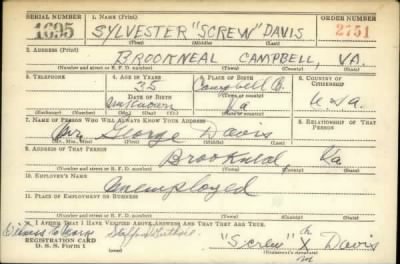 SERIAL NUMBER 1. NAME (Print) ORDER NUMBER
1695 SYLVESTER "SCREW" DAVIS 2751
(First) (Middle) (Last)
2. ADDRESS (Print)
BROOKNEAL CAMPBELL, VA.
(Number and street or R. F. D. number) (Town) (County) (State)
3. TELEPHONE 4. AGE IN YEARS 5. PLACE OF BIRTH 6. COUNTRY OF CITIZENSHIP
35 Campbell Co.
DATE OF BIRTH (Town or county)
unknown Va U.S.a.
(Exchange) (Number) (Mo.) (Day) (Yr.) (State or country)
7. NAME OF PERSON WHO WILL ALWAYS KNOW YOUR ADDRESS 8. RELATIONSHIP OF THAT PERSON
George Davis
(Mr., Mrs., Miss) (First) (Middle) (Last)
9. ADDRESS OF THAT PERSON
Brookneal, Va
(Number and street or R. F. D. number) (Town) (County) (State)
10. EMPLOYER'S NAME
Unemployed
11. PLACE OF EMPLOYMENT OR BUSINESS
(Number and street or R. F. D. number) (Town) (County) (State)
I AFFIRM THAT I HAVE VERIFIED ABOVE ANSWERS AND THAT THEY ARE TRUE.
Witness to Mark
REGISTRATION CARD
D. S. S. Form 1 "Screw" X Davis